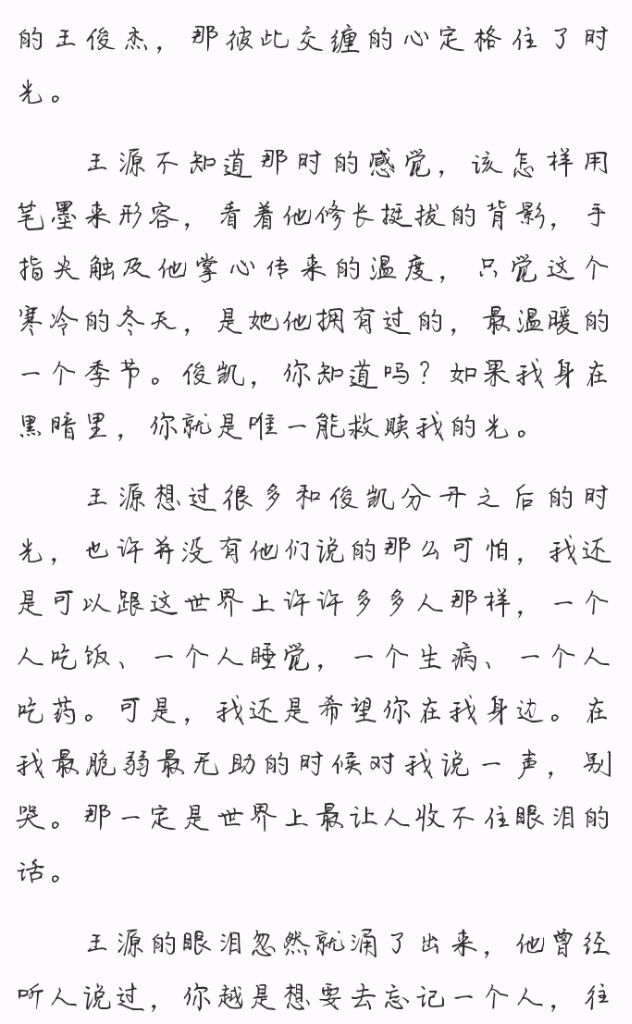 的王俊杰，那彼此交缠的心定格住了时
光。
王源不知道那时的感觉，该怎样用
笔墨来形容，看着他修长挺拔的背影，手
指尖触及他掌心传来的温度，只觉这个
寒冷的冬天，是她他拥有过的，最温暖的
一个季节。俊凯，你知道吗？如果我身在
黑暗里，你就是唯一能救赎我的光。
王源想过很多和俊凯分开之后的时
光，也许并没有他们说的那么可怕，我还
是可以跟这世界上许许多多人那样，一个
人吃饭、一个人睡觉，一个生病、一个人
吃药。可是，我还是希望你在我身边。在
我最脆弱最无助的时候对我说一声，别
哭。那一定是世界上最让人收不住眼泪的
话。
王源的眼泪忽然就涌了出来，他曾经
听人说过，你越是想要去忘记一个人，往